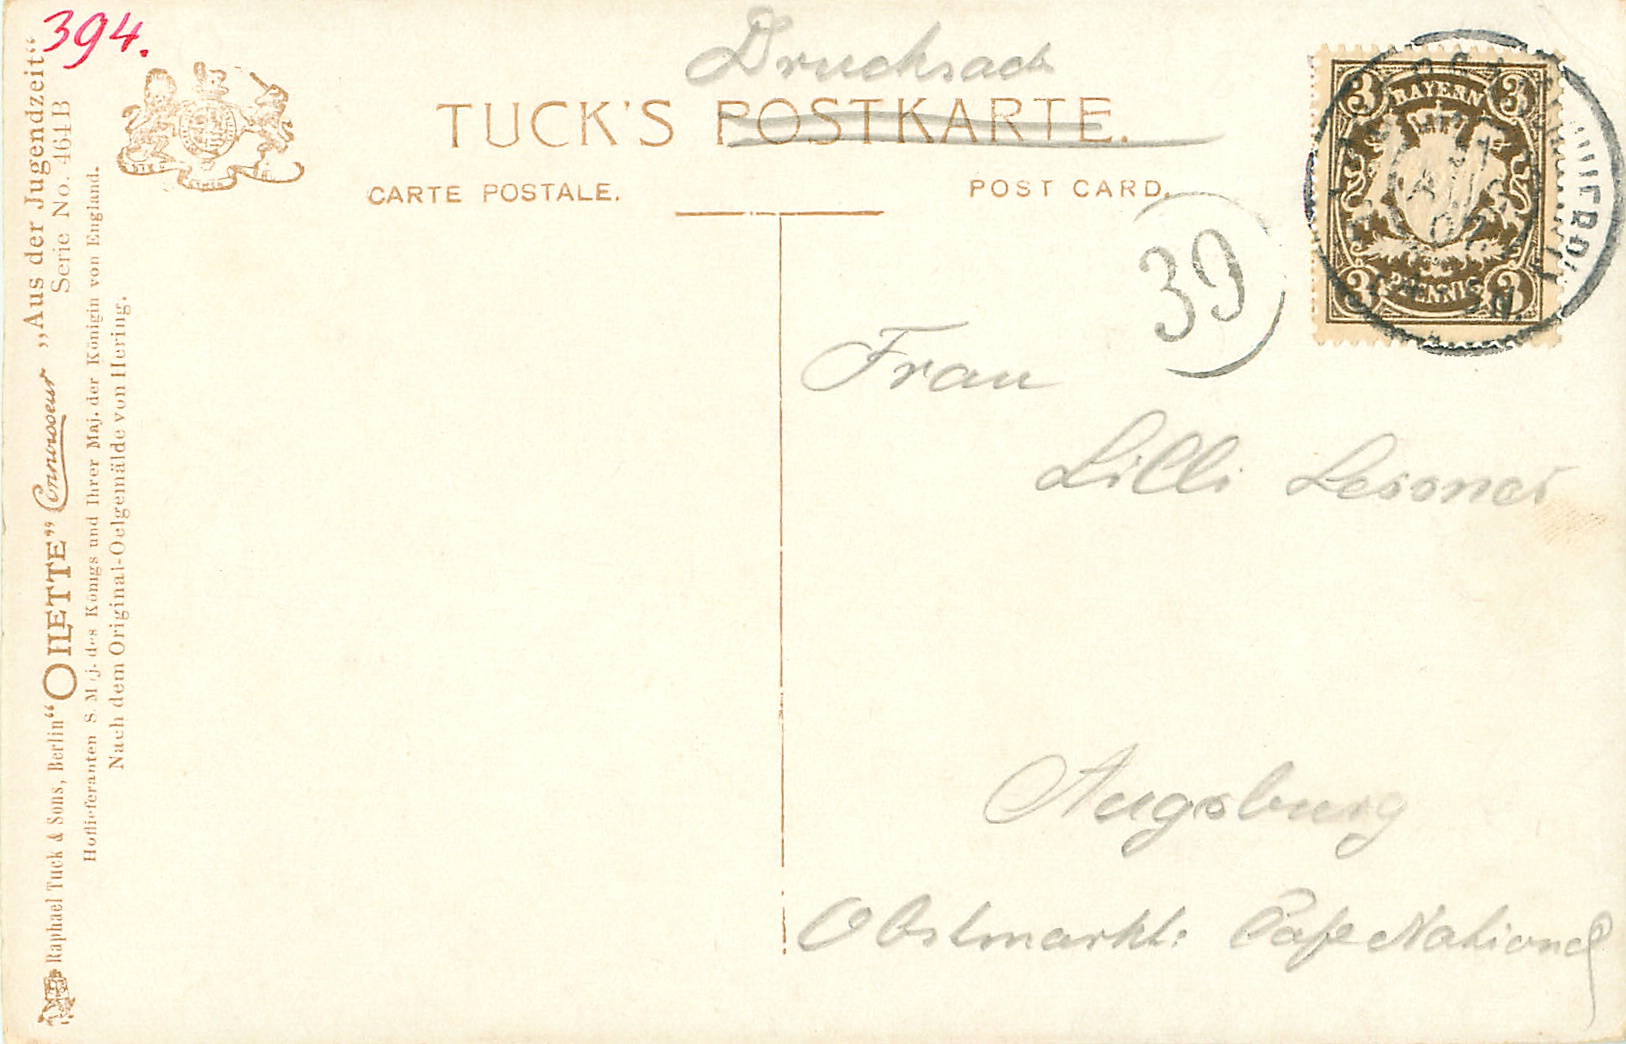 394.
Drucksach
TUCK'S POSTKARTE.
CARTE POSTALE.
POST CARD.
39
3 BAYERN 3
3 PFENNIG 3
Frau
Lilli Lessner
Augsburg
Obstmarkt: Cafe National
„Aus der Jugendzeit“
Serie No. 464 B
Raphael Tuck & Sons, Berlin “OILETTE” Connoisseur
Hoflieferanten S. Maj. des Königs und Ihrer Maj. der Königin von England.
Nach dem Original-Oelgemälde von Hering.